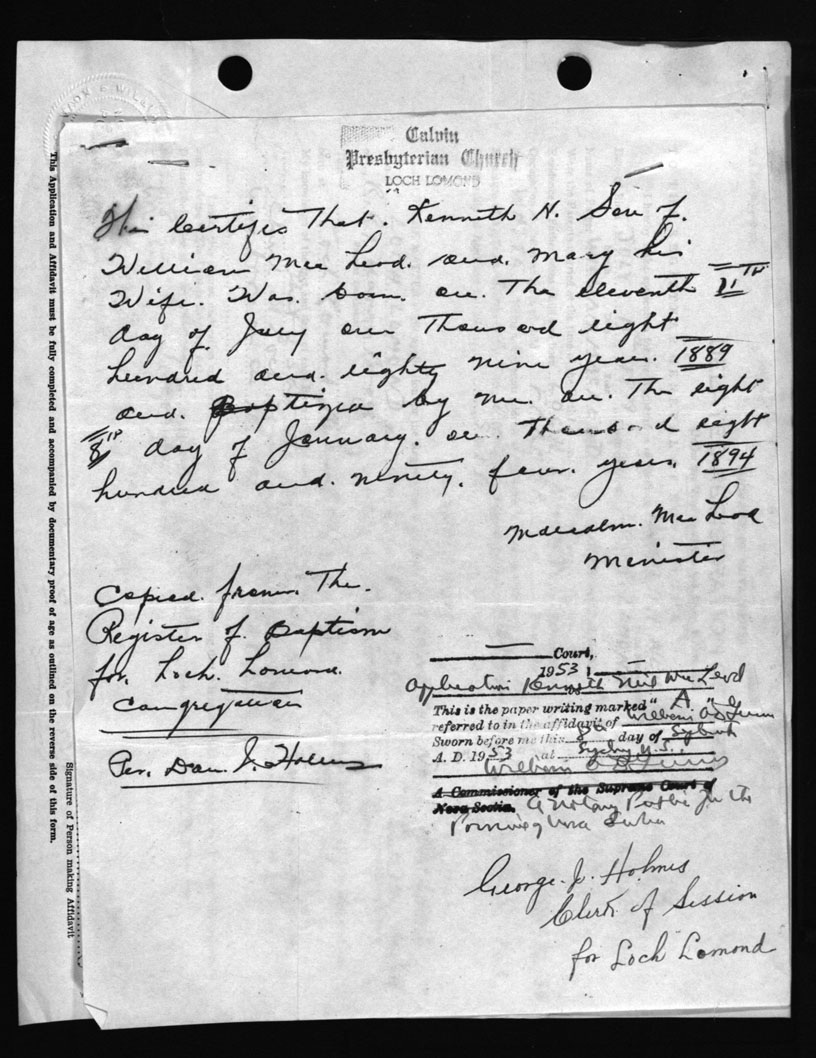 Calvin
Presbyterian Church
LOCH LOMOND
This Certifys That. Kenneth N. Son of.
William Mac Leod. and. Mary his
Wife. Was. born. on. The eleventh 11th
day of. July one Thousand eight
hundred and. eighty nine years. 1889
and. Baptized by me. on. The eight
8th day of January. on Thousand eight
hundred and. ninety. four. years. 1894
Malcolm. Mac Leod
Minister
Copied. from. The.
Register of. Baptism
for. Loch. Lomond.
Congregation
Per. Dan J. Holmes
Court,
1953
Application Kenneth Neil Mac Leod
This is the paper writing marked "A"
referred to in the affidavit of
Sworn before me this 8 day of
A. D. 1953 at Sydney N.S.
A Commissioner of the Supreme Court of
Nova Scotia. A Notary Public for the
Province of Nova Scotia
George. J. Holmes
Clerk of Session
for Loch Lomond
This Application and Affidavit must be fully completed and accompanied by documentary proof of age as outlined on the reverse side of this form.
Signature of Person making Affidavit